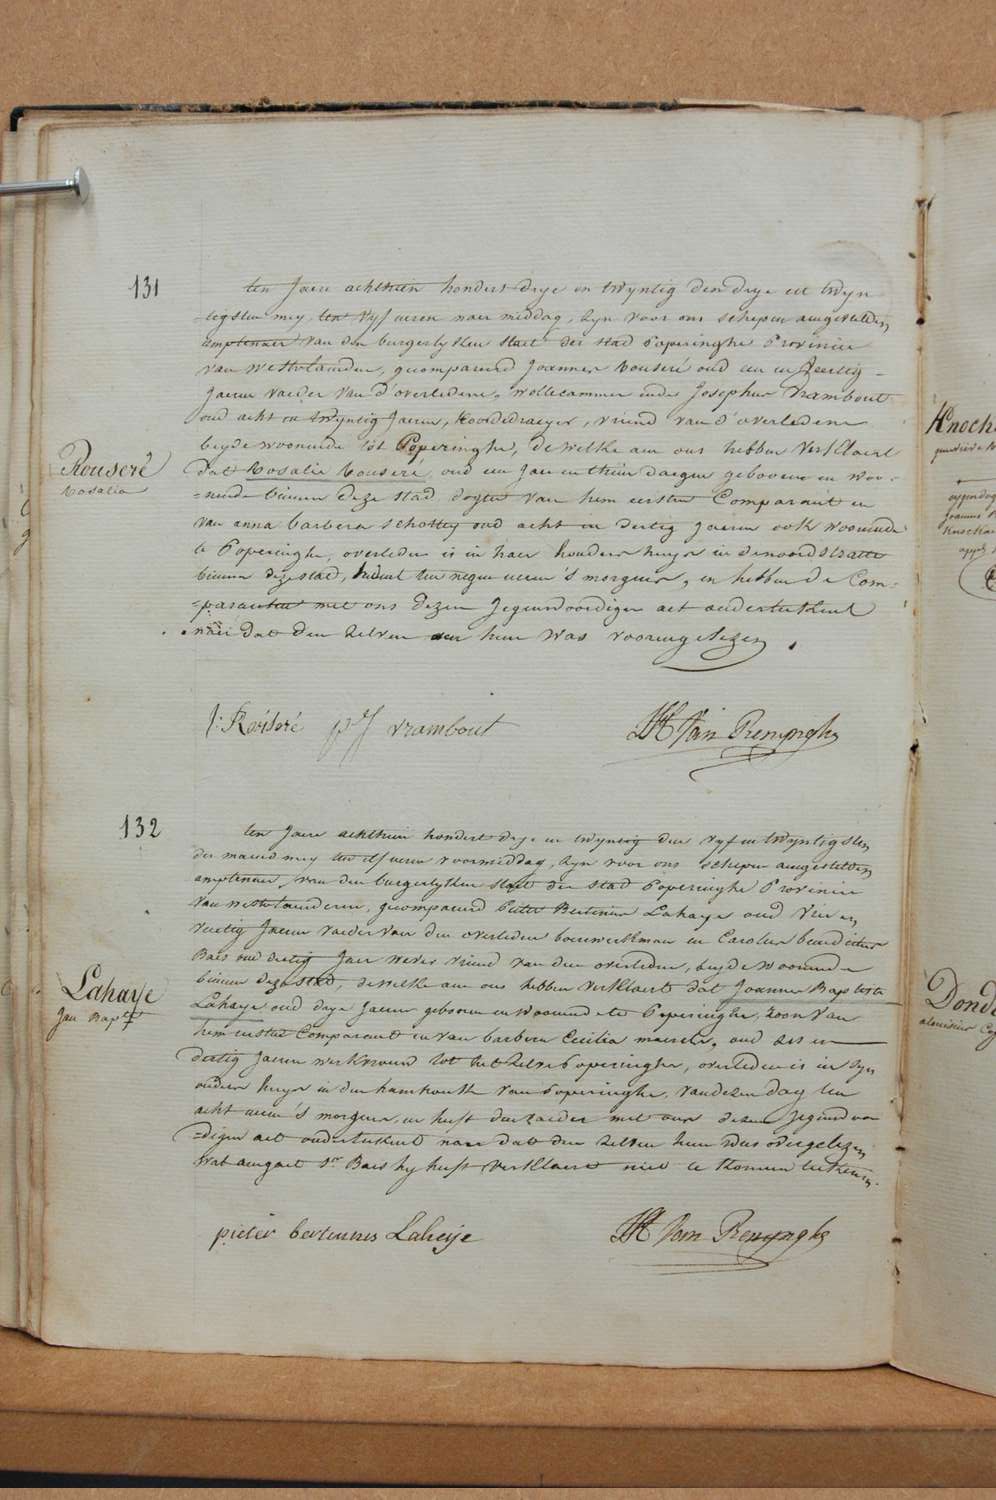 131
ten Jaere achthien hondert drye en twyntig den drye en twyn
=tegsten mey ten vyf ueren naer middag, zyn voor ons schepen aengestelden
amptenaer van den burgerlyken staet der stad Poperinghe Provincie
van Westvlaenderen, gecompareerd Joannes Rouseré oud een en veertig
Jaeren vaeder van d'overledene, wollecammer ende Josephus Vrambout
oud acht en twyntig Jaeren, Koordedraeyer, vriend van d'overledene
beyde woonende tot Poperinghe, dewelke aen ons hebben verklaert
dat Rosalie Rouseré oud een Jaer en thien daegen geboren en woo-
=nende binnen deze stad dogter van hem eersten Comparant en
van anna barbera schottey oud acht in dertig Jaeren ook woonende
te Poperinghe, overleden is in haer houders huys in de noordstraete
binnen deze stad, heden ten negen ueren 's morgens, en hebben de Com=
=paranten met ons dezen Jegenwoordigen act onderteekent
naer dat den zelven aen hun was voorengelezen.
Rouseré
Rosalia
J: Rouseré pJ vrambout
Van Renynghe
132
ten Jaere achthien hondert drye en twyntig den vyf en twyntigsten
der maend mey ten elf ueren voormiddag, zyn voor ons schepen aengestelden
amptenaer, van den burgerlyken staet der stad Poperinghe Provincie
van Westvlaenderen, gecompareerd Pieter Bertinus Lahaye oud vier en
veertig Jaeren vaeder van den overleden boerwerkman en Carolus benedictus
Baes oud dertig Jaer wever vriend van den overleden, beyde woonende
binnen deze stad, dewelke aen ons hebben verklaert dat Joannes Baptiste
Lahaye oud drye Jaeren geboren en woonende te Poperinghe, zoon van
hem eersten Comparant en van barbera Cecilia oud zes en
dertig Jaeren werkvrouw tot het zelve Poperinghe, overleden is in zyn
ouders huys in den hamhoeck van Poperinghe, van dezen dag ten
acht ueren 's morgens, en heeft den vaeder met ons dezen Jegenwoor
=digen act onderteekent naer dat den zelven hun was voorgelezen
wat aengaet sr Baes hy heeft verklaert niet te konnen teekenen.
Lahaye
Jan Bapt
pieter bertinus Lahaye
Van Renynghe
Knock
Dond